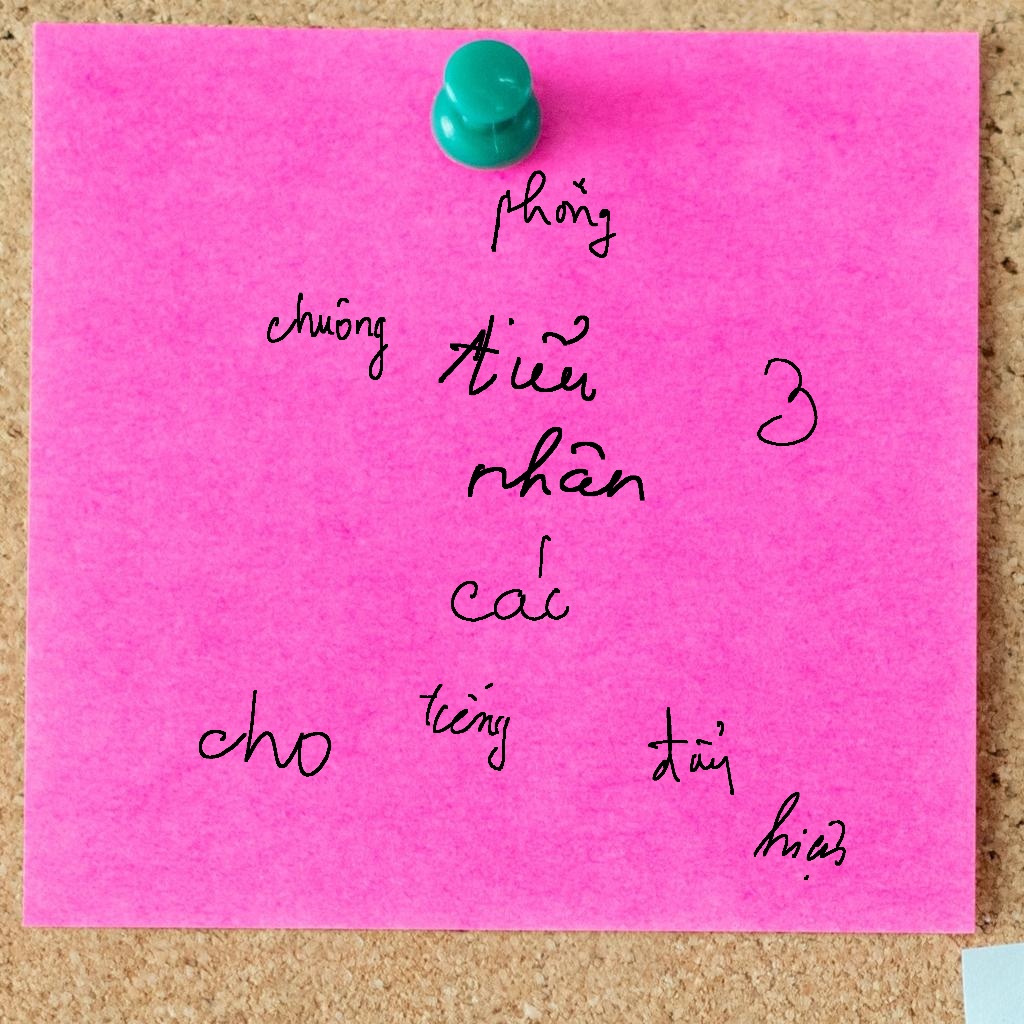 phỏng
chuông tiểu 3
nhân
các
cho tiếng đẩy
hiện